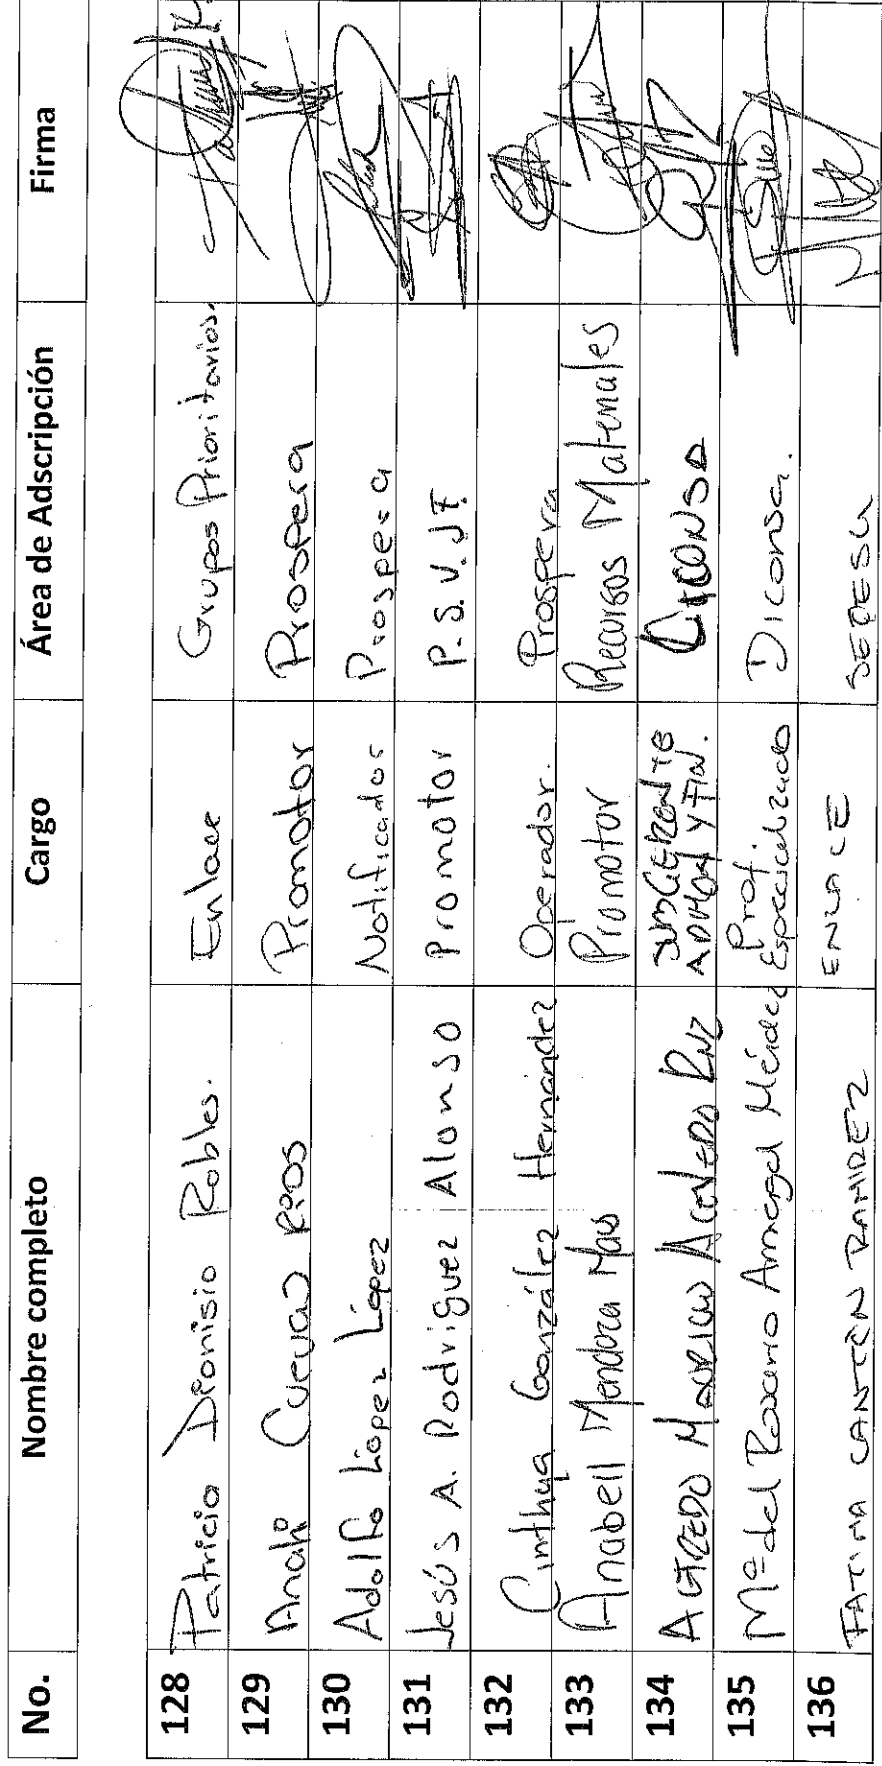 No. Nombre completo Cargo Área de Adscripción Firma
128 Patricia Dionisio Robles. Enlace Grupos Prioritarios.
129 Anahi Cuevas Rios Promotor Prospera
130 Adolfo López López Notificador Prospera
131 Jesús A. Rodriguez Alonso Promotor P.S.V.J.F.
132 Cinthya González Hernández Operador. Prospera
133 Anabell Mendoza Promotor Recursos Materiales
134 ALFREDO MAURICIO ACEVEDO RMZ SUBGERENTE
ADMON Y FIN. DICONSA
135 Mª del Rosario Amezgd Méndez Prof.
Especializado Diconsa.
136 FATIMA RAMIREZ ENLACE SEDESOL